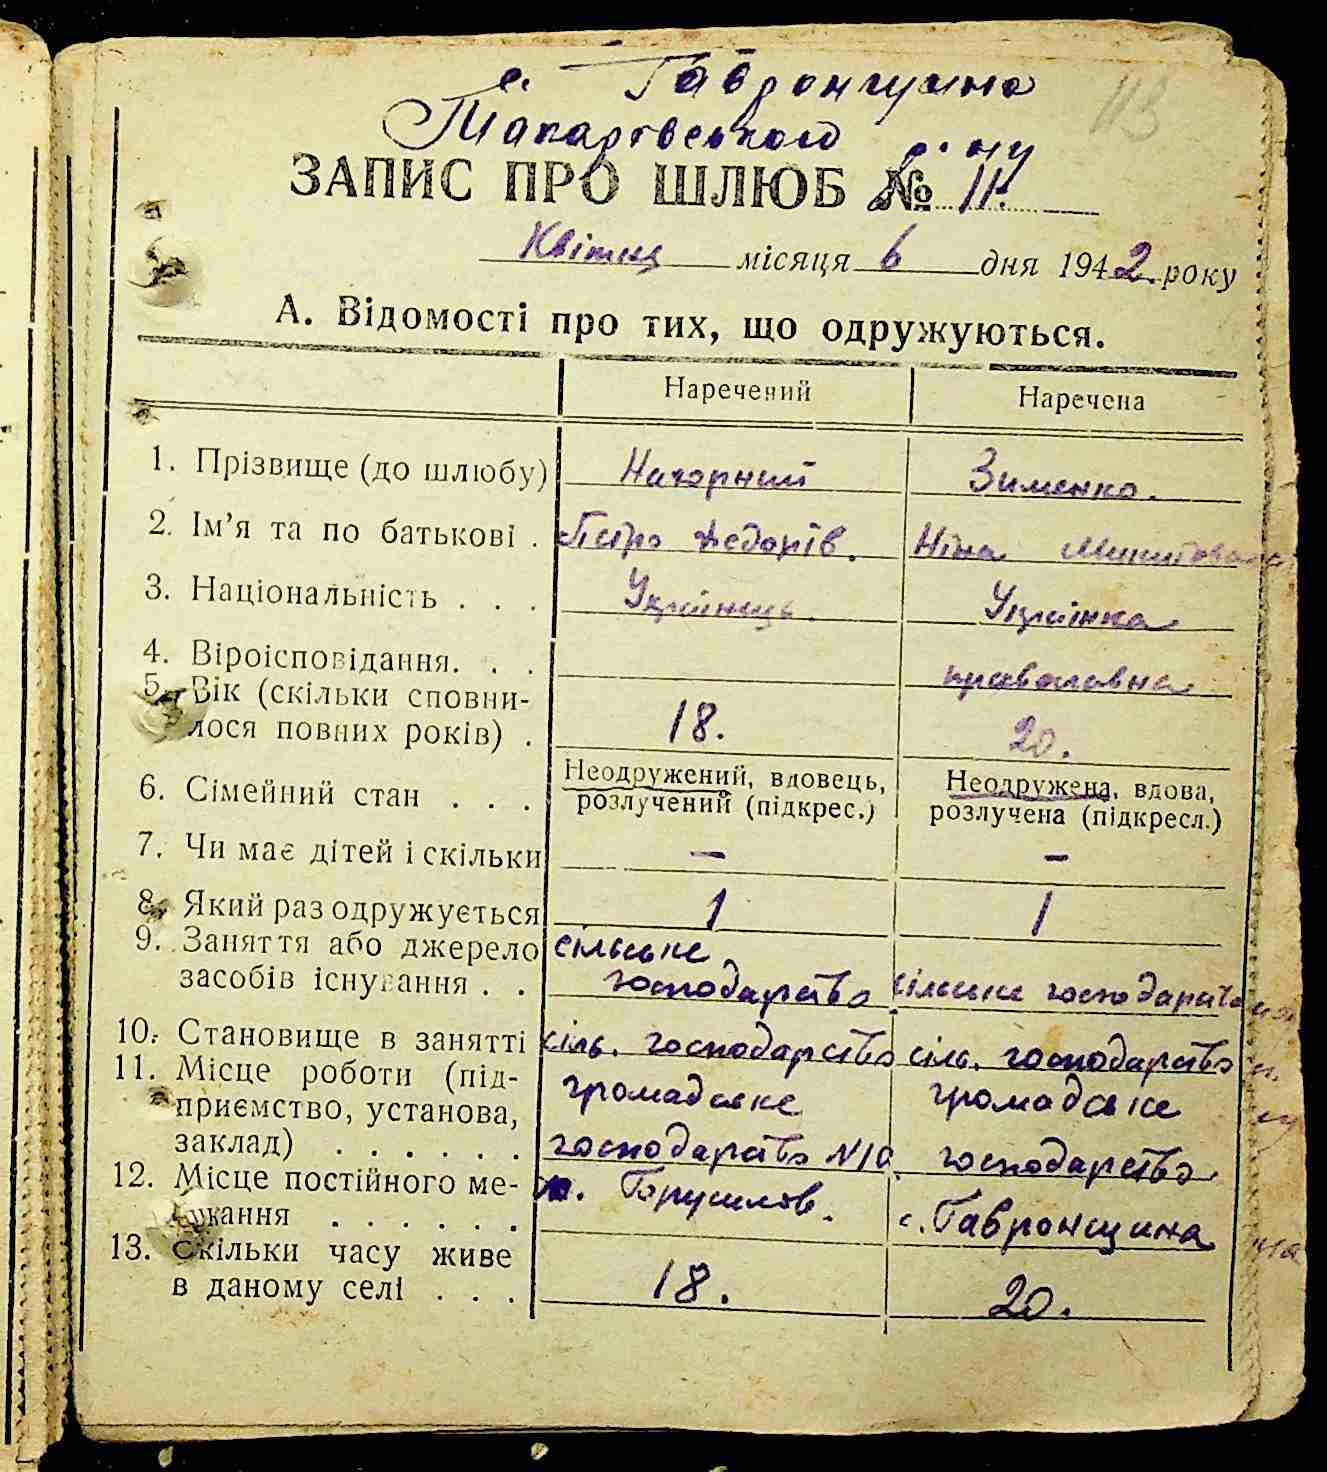 с. Гавронщина
Макарівського р-ну
113
ЗАПИС ПРО ШЛЮБ № 11.
Квітня місяця 6 дня 1942. року
А. Відомості про тих, що одружуються.
Наречений Наречена
1. Прізвище (до шлюбу) Нагорний Зименко.
2. Ім’я та по батькові . Петро Федорів. Ніна Микитовна
3. Національність . . . Українець. Українка
4. Віроісповідання. . . православна
5. Вік (скільки сповни-
лося повних років) . 18. 20.
6. Сімейний стан . . . Неодружений, вдовець, розлучений (підкрес.) Неодружена, вдова, розлучена (підкресл.)
7. Чи має дітей і скільки — —
8. Який раз одружується 1 1
9. Заняття або джерело сільське
засобів існування . . господарство сільське господарство
10. Становище в занятті сіль. господарство сіль. господарство
11. Місце роботи (під- громадське громадське
приємство, установа,
заклад) . . . . . . господарство №10. господарство
12. Місце постійного ме- с. Гавронщина
шкання . . . . . .
13. Скільки часу живе
в даному селі . . . 18. 20.